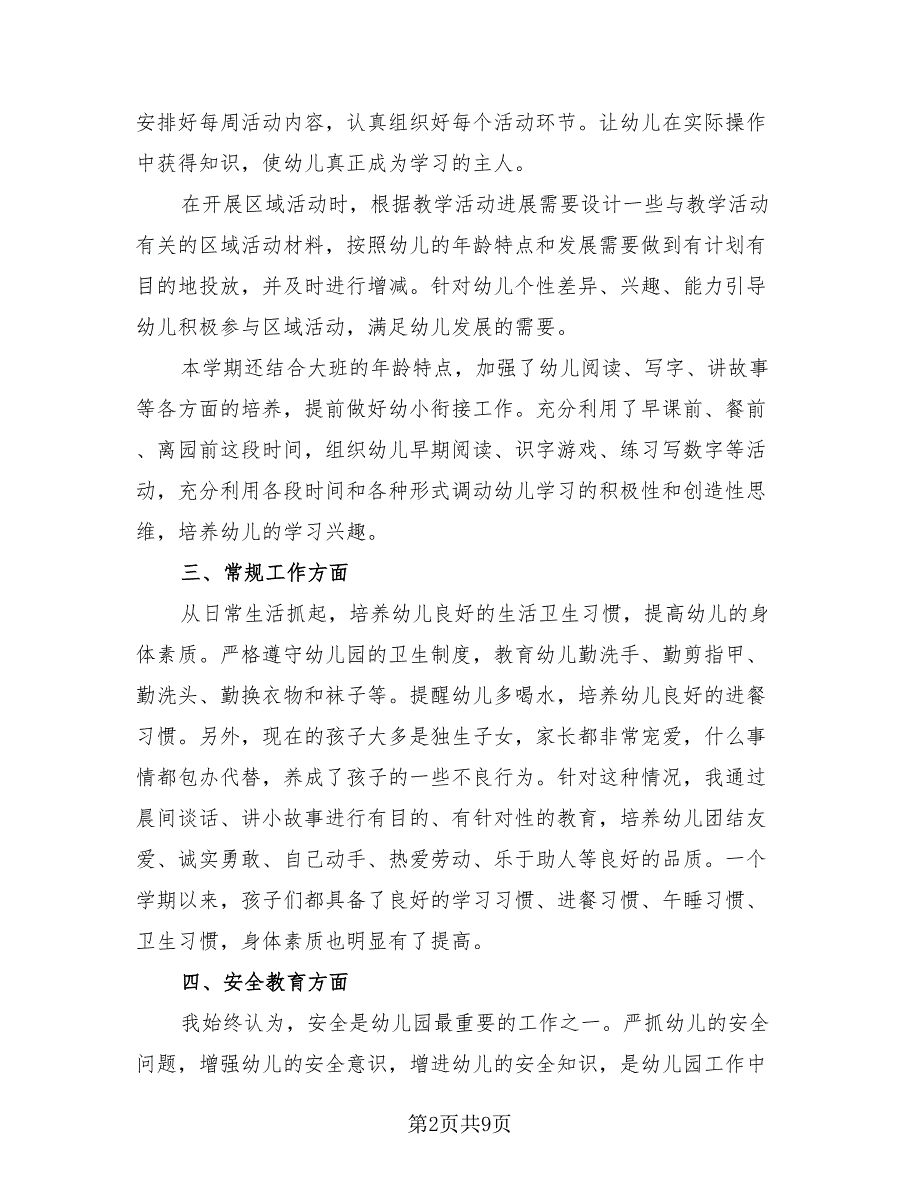 安排好每周活动内容，认真组织好每个活动环节。让幼儿在实际操作
中获得知识，使幼儿真正成为学习的主人。
在开展区域活动时，根据教学活动进展需要设计一些与教学活动
有关的区域活动材料，按照幼儿的年龄特点和发展需要做到有计划有
目的地投放，并及时进行增减。针对幼儿个性差异、兴趣、能力引导
幼儿积极参与区域活动，满足幼儿发展的需要。
本学期还结合大班的年龄特点，加强了幼儿阅读、写字、讲故事
等各方面的培养，提前做好幼小衔接工作。充分利用了早课前、餐前
、离园前这段时间，组织幼儿早期阅读、识字游戏、练习写数字等活
动，充分利用各段时间和各种形式调动幼儿学习的积极性和创造性思
维，培养幼儿的学习兴趣。
三、常规工作方面
从日常生活抓起，培养幼儿良好的生活卫生习惯，提高幼儿的身
体素质。严格遵守幼儿园的卫生制度，教育幼儿勤洗手、勤剪指甲、
勤洗头、勤换衣物和袜子等。提醒幼儿多喝水，培养幼儿良好的进餐
习惯。另外，现在的孩子大多是独生子女，家长都非常宠爱，什么事
情都包办代替，养成了孩子的一些不良行为。针对这种情况，我通过
晨间谈话、讲小故事进行有目的、有针对性的教育，培养幼儿团结友
爱、诚实勇敢、自己动手、热爱劳动、乐于助人等良好的品质。一个
学期以来，孩子们都具备了良好的学习习惯、进餐习惯、午睡习惯、
卫生习惯，身体素质也明显有了提高。
四、安全教育方面
我始终认为，安全是幼儿园最重要的工作之一。严抓幼儿的安全
问题，增强幼儿的安全意识，增进幼儿的安全知识，是幼儿园工作中
第2页共9页